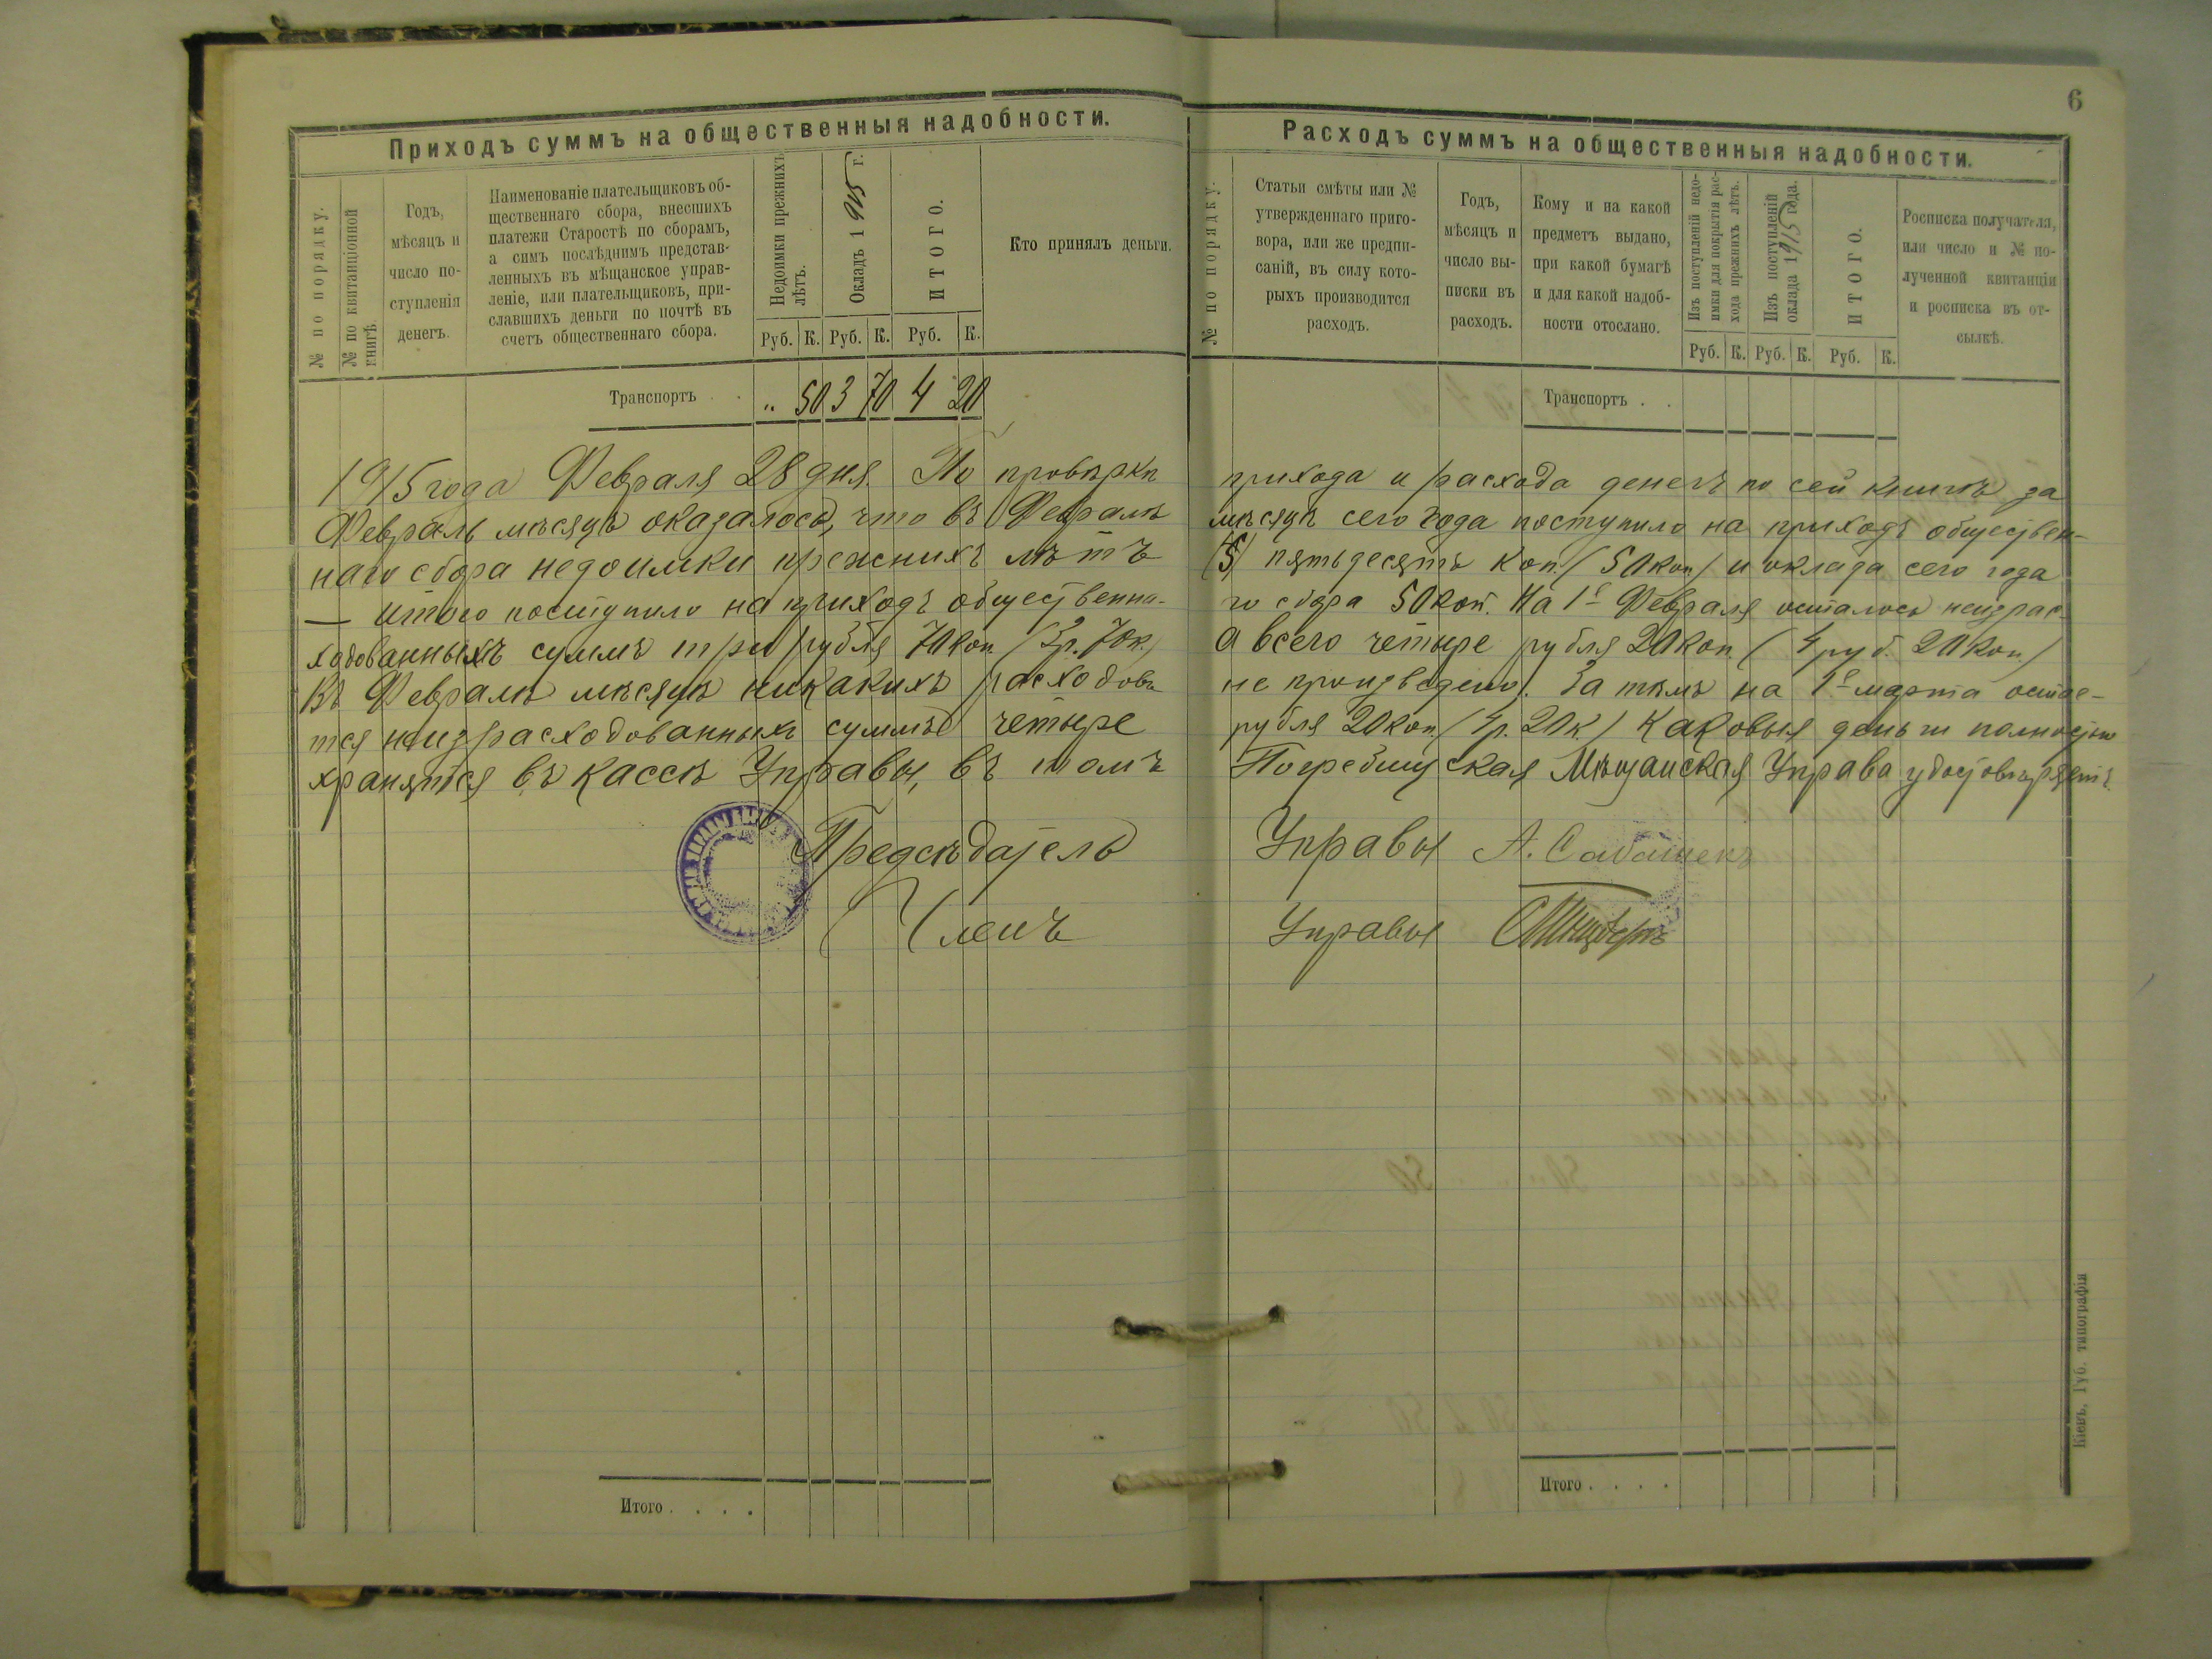 6
Приходъ суммъ на общественныя надобности.
№ по порядку.
№ по квитанціонной книгѣ.
Годъ,
мѣсяцъ и
число по-
ступленія
денегъ.
Наименованіе плательщиковъ об-
щественнаго сбора, внесшихъ
платежи Старостѣ по сборамъ,
а симъ послѣднимъ представ-
ленныхъ въ мѣщанское управ-
леніе, или плательщиковъ, при-
славшихъ деньги по почтѣ въ
счетъ общественнаго сбора.
Недоимки прежнихъ
лѣтъ.
Окладъ 1915 г.
ИТОГО.
Кто принялъ деньги.
Руб. К. Руб. К. Руб. К.
Транспортъ . . „ 50 3 70 4 20
1915 года Февраля 28 дня. По провѣркѣ
Февраль мѣсяцъ оказалось, что въ Февралѣ
наго сбора недоимки прежнихъ лѣтъ
— итого поступило на приходъ обществена-
ходованныхъ суммъ три рубля 70 коп. (3 р. 70 к.)
Въ Февралѣ мѣсяцѣ никакихъ расходовъ
тся неизрасходованныхъ суммъ четыре
хранятся въ кассѣ Управы, въ томъ
Предсѣдатель
Членъ
Итого . . . .
Расходъ суммъ на общественныя надобности.
№ по порядку.
Статьи смѣты или №
утвержденнаго приго-
вора, или же предпи-
саній, въ силу кото-
рыхъ производится
расходъ.
Годъ,
мѣсяцъ и
число вы-
писки въ
расходъ.
Кому и на какой
предметъ выдано,
при какой бумагѣ
и для какой надоб-
ности отослано.
Изъ поступленій недо-
имки для покрытія рас-
хода прежнихъ лѣтъ.
Изъ поступленій
оклада 1915 года.
ИТОГО.
Росписка получателя,
или число и № по-
лученной квитанціи
и росписка въ от-
сылкѣ.
Руб. К. Руб. К. Руб. К.
Транспортъ . .
прихода и расхода денегъ по сей книгѣ за
мѣсяцѣ сего года поступило на приходъ обществен-
пятьдесятъ коп. (50 коп.) и оклада сего года
го сбора 50 коп. На 1е Февраля осталось неизрас-
а всего четыре рубля 20 коп. (4 руб. 20 коп.)
не произведено. За тѣмъ на 1е марта остае-
рубля 20 коп. (4 р. 20 к.) каковыя деньги полностью
Погребищская Мѣщанская Управа удостовѣряетъ.
Управы А.
Управы
Итого . . . .
Кіевъ, Губ. типографія